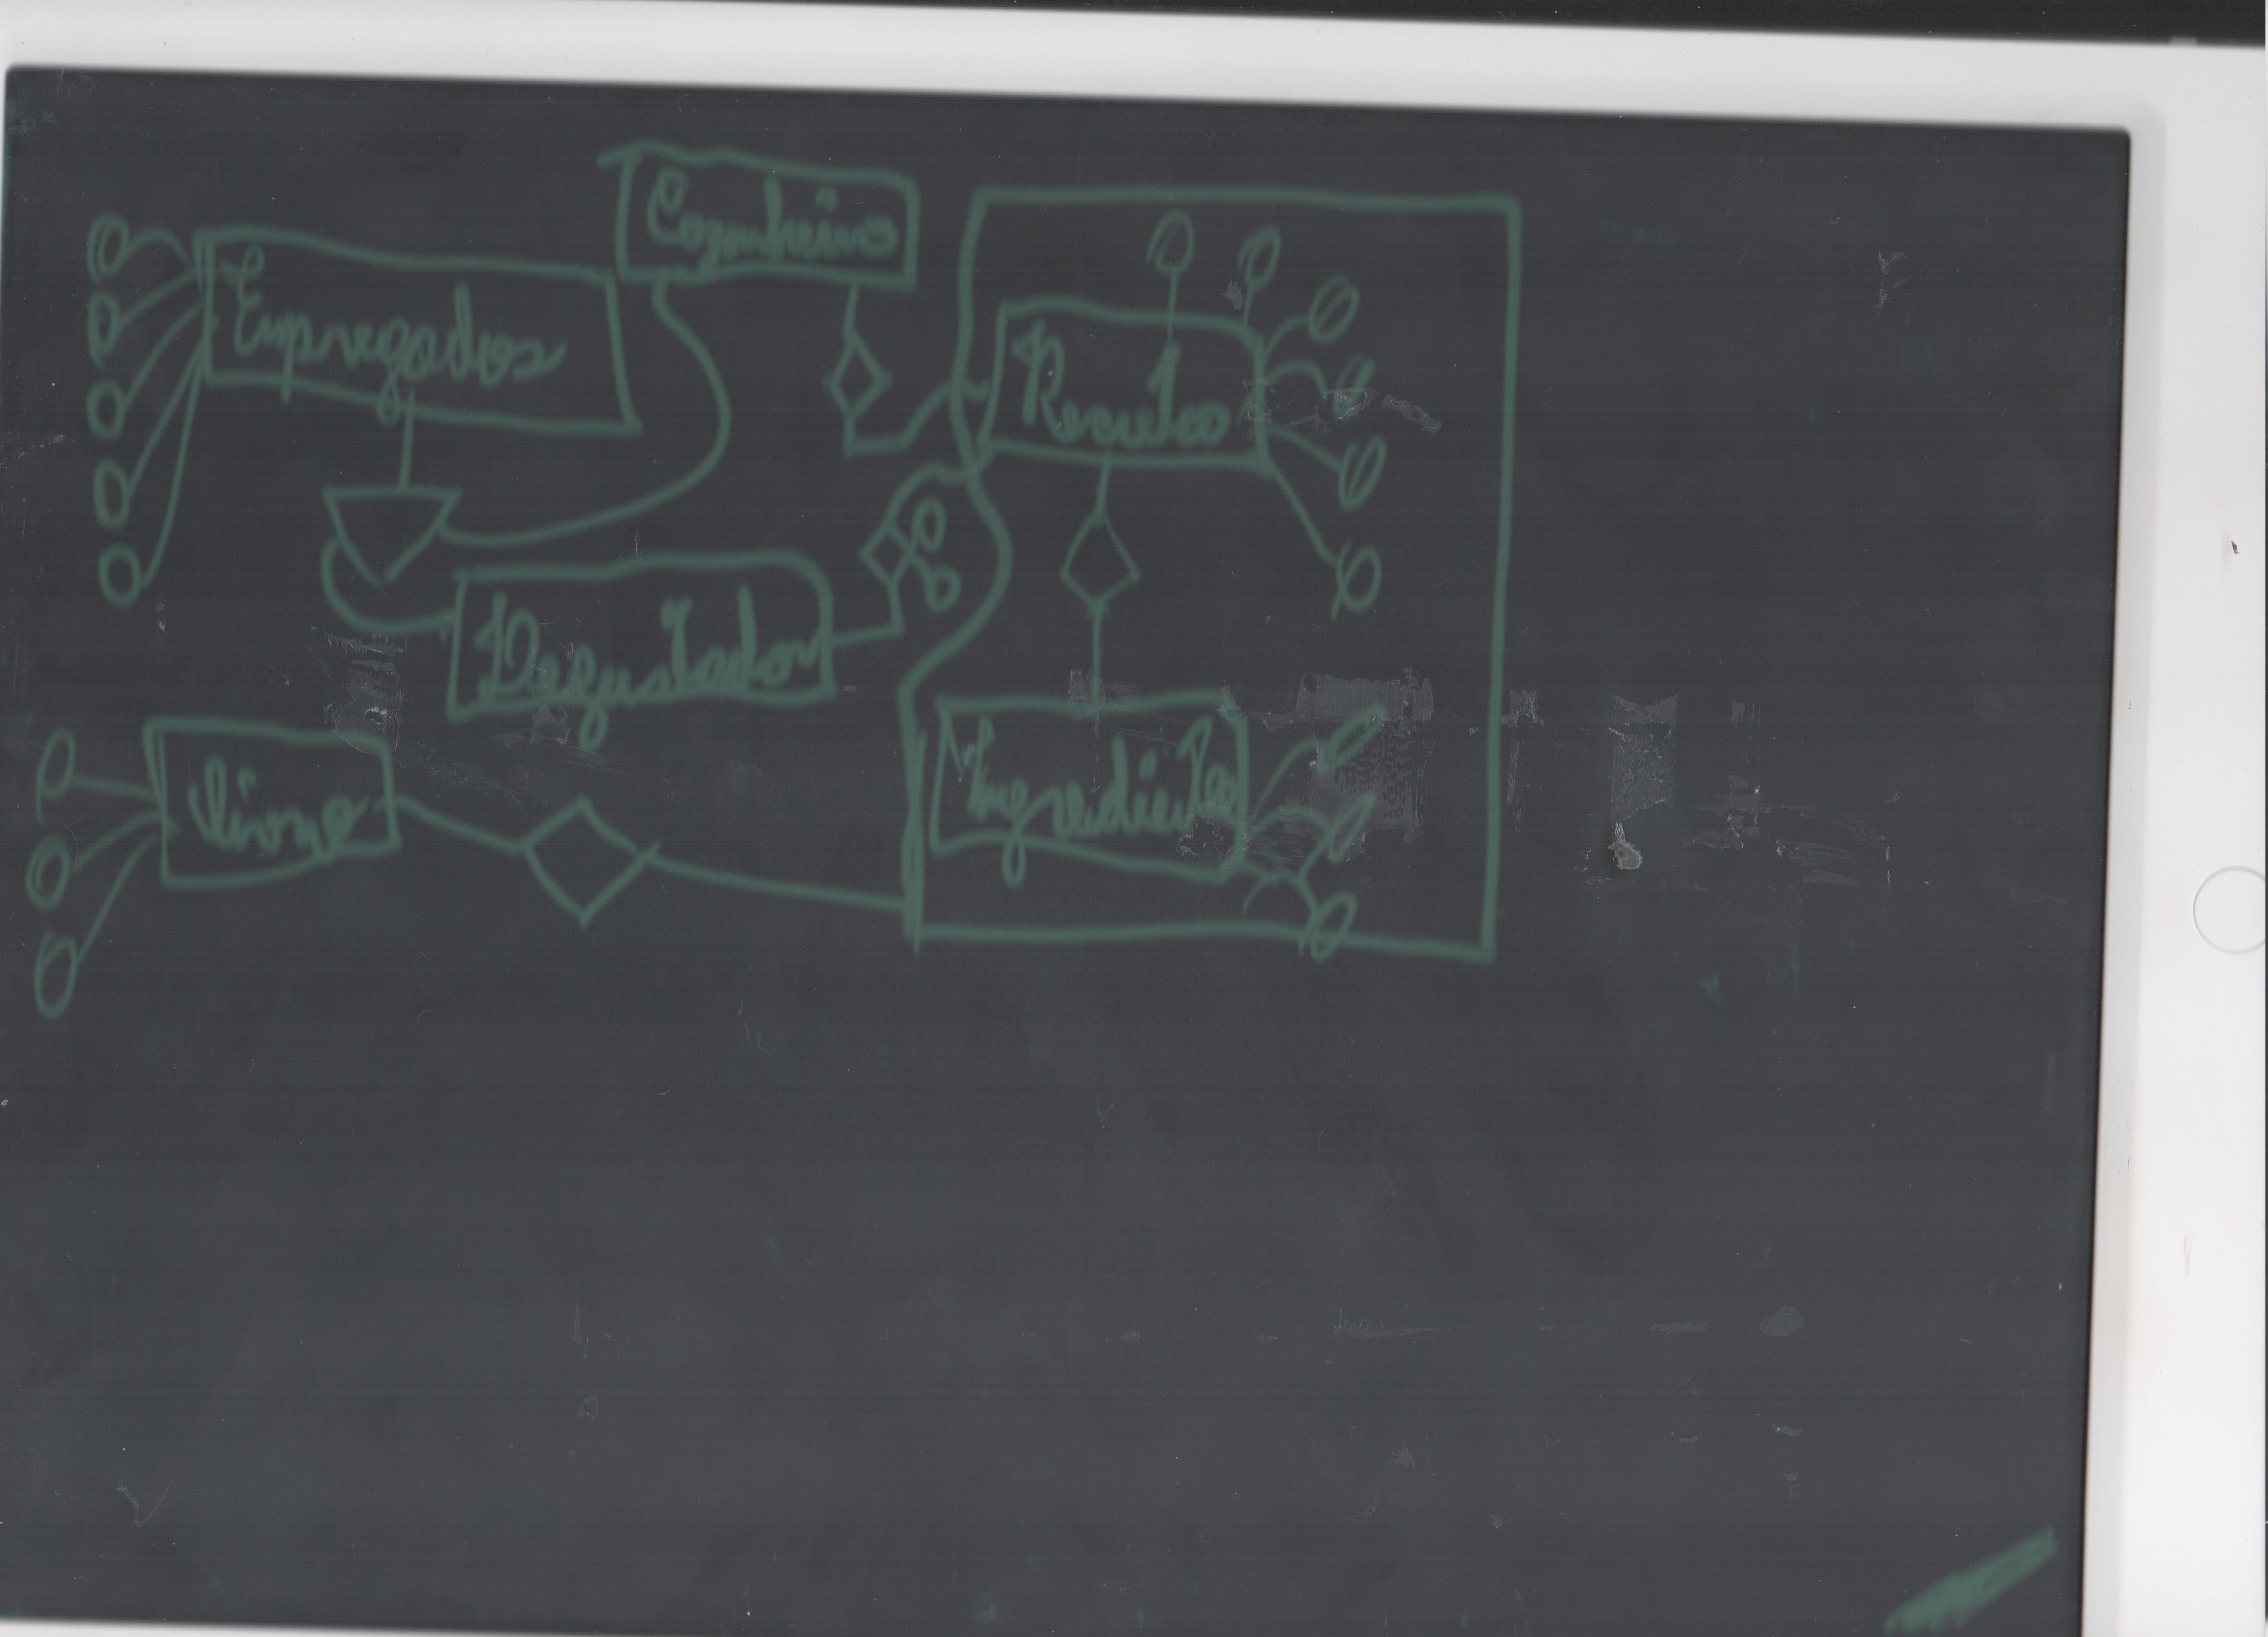 Cozinheiro
Empregados
Receitas
Degustador
Ingredientes
Livro